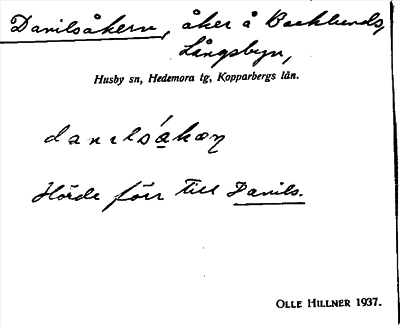 Danilsåkern, åker å Backlunds,
Långsbyn,
Husby sn, Hedemora tg, Kopparbergs län.
danılsåkəɳ
Hörde förr till Danils.
OLLE HILLNER 1937.